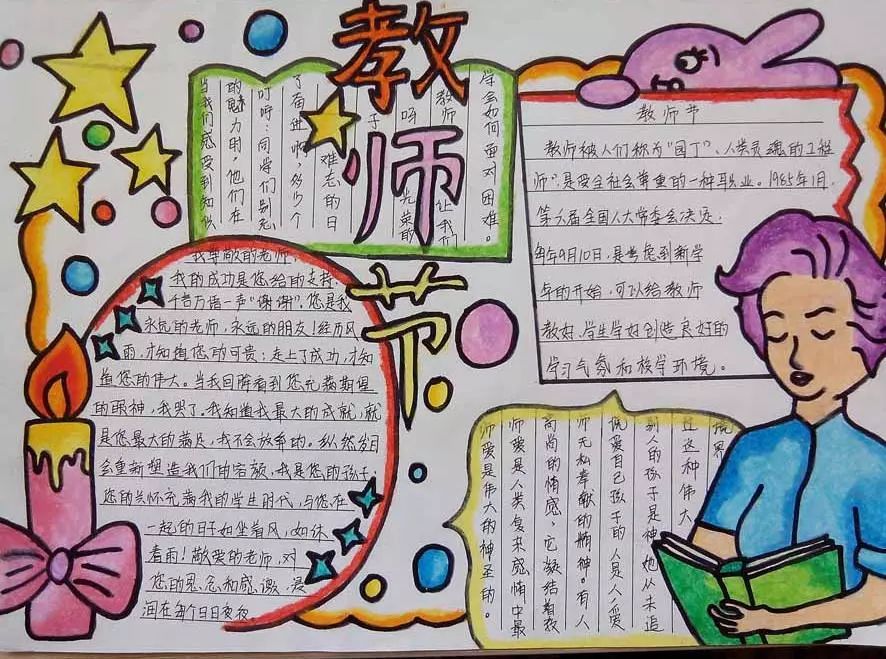 教师节
学会如何面对困难。
让我们
教师
光荣的
呀
子
难忘的日
了奋进啊，多少个
叮咛：同学们别忘
的魅力时，他们在
当我们感受到知识
教师节
教师被人们称为“园丁”、人类灵魂的工程
师”，是受全社会尊重的一种职业。1985年1月，
第六届全国人大常委会决定，
每年9月10日，是考虑到新学
年的开始，可以给教师
教好、学生学好创造良好的
学习气氛和校学环境。
我尊敬的老师
我的成功是您给的支持，
千言万语一声“谢谢”，您是我
永远的老师，永远的朋友！经历风
雨，才知道您的可贵；走上了成功，才知
道您的伟大。当我回眸看到您充满期望
的眼神，我哭了。我知道我最大的成就，就
是您最大的满足，我不会放弃的。纵然岁月
会重新塑造我们的容颜，我是您的孩子；
您的关怀充满我的学生时代，与您在
一起的日子如坐春风，如沐
春雨！敬爱的老师，对
您的思念和感激，浸
润在每个日日夜夜
过这种伟大
别人的孩子是神，她从未追
说爱自己孩子的人是人，爱
师无私奉献的精神。有人
高尚的情感，它凝结着教
师爱是人类复杂感情中最
师爱是伟大的神圣的。